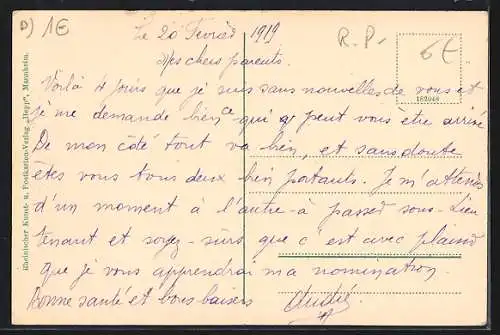 D) 1€
Le 20 Février 1919
R.P.
6€
182046
Mes chers parents.
Voilà 4 jours que je suis sans nouvelles de vous et
je me demande bien ce qui a peut vous être arrivé
De mon côté tout va bien, et sans doute
êtes vous tous deux bien portants. Je m'attends
d'un moment à l'autre à passer sous-Lieu
tenant et soyez-sûrs que c'est avec plaisir
que je vous apprendrai ma nomination.
Bonne santé et bons baisers
André
Rheinischer Kunst- u. Postkarten-Verlag „Dege“, Mannheim.